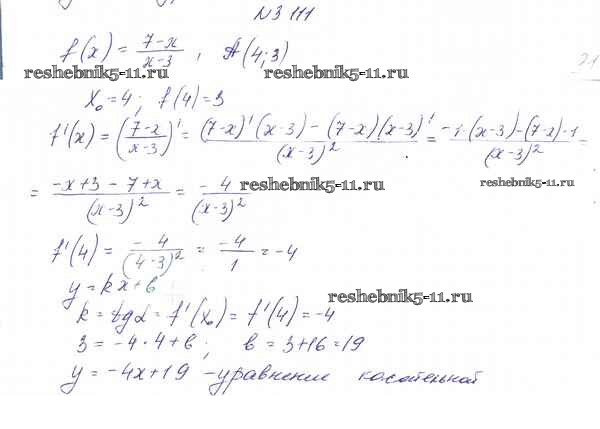 №3 111
f(x) = (7-x)/(x-3) , A(4;3)
reshebnik5-11.ru reshebnik5-11.ru
x₀=4; f(4)=3
reshebnik5-11.ru
f'(x) = ((7-x)/(x-3))' = ((7-x)'(x-3) - (7-x)(x-3)')/(x-3)² = (-1·(x-3)-(7-x)·1)/(x-3)² =
= (-x+3-7+x)/(x-3)² = (-4)/(x-3)² reshebnik5-11.ru reshebnik5-11.ru
f'(4) = (-4)/(4-3)² = (-4)/1 = -4
y = kx+b
reshebnik5-11.ru
k = tgα = f'(x₀) = f'(4) = -4
3 = -4·4+b; b = 3+16=19
y = -4x+19 - уравнение касательной